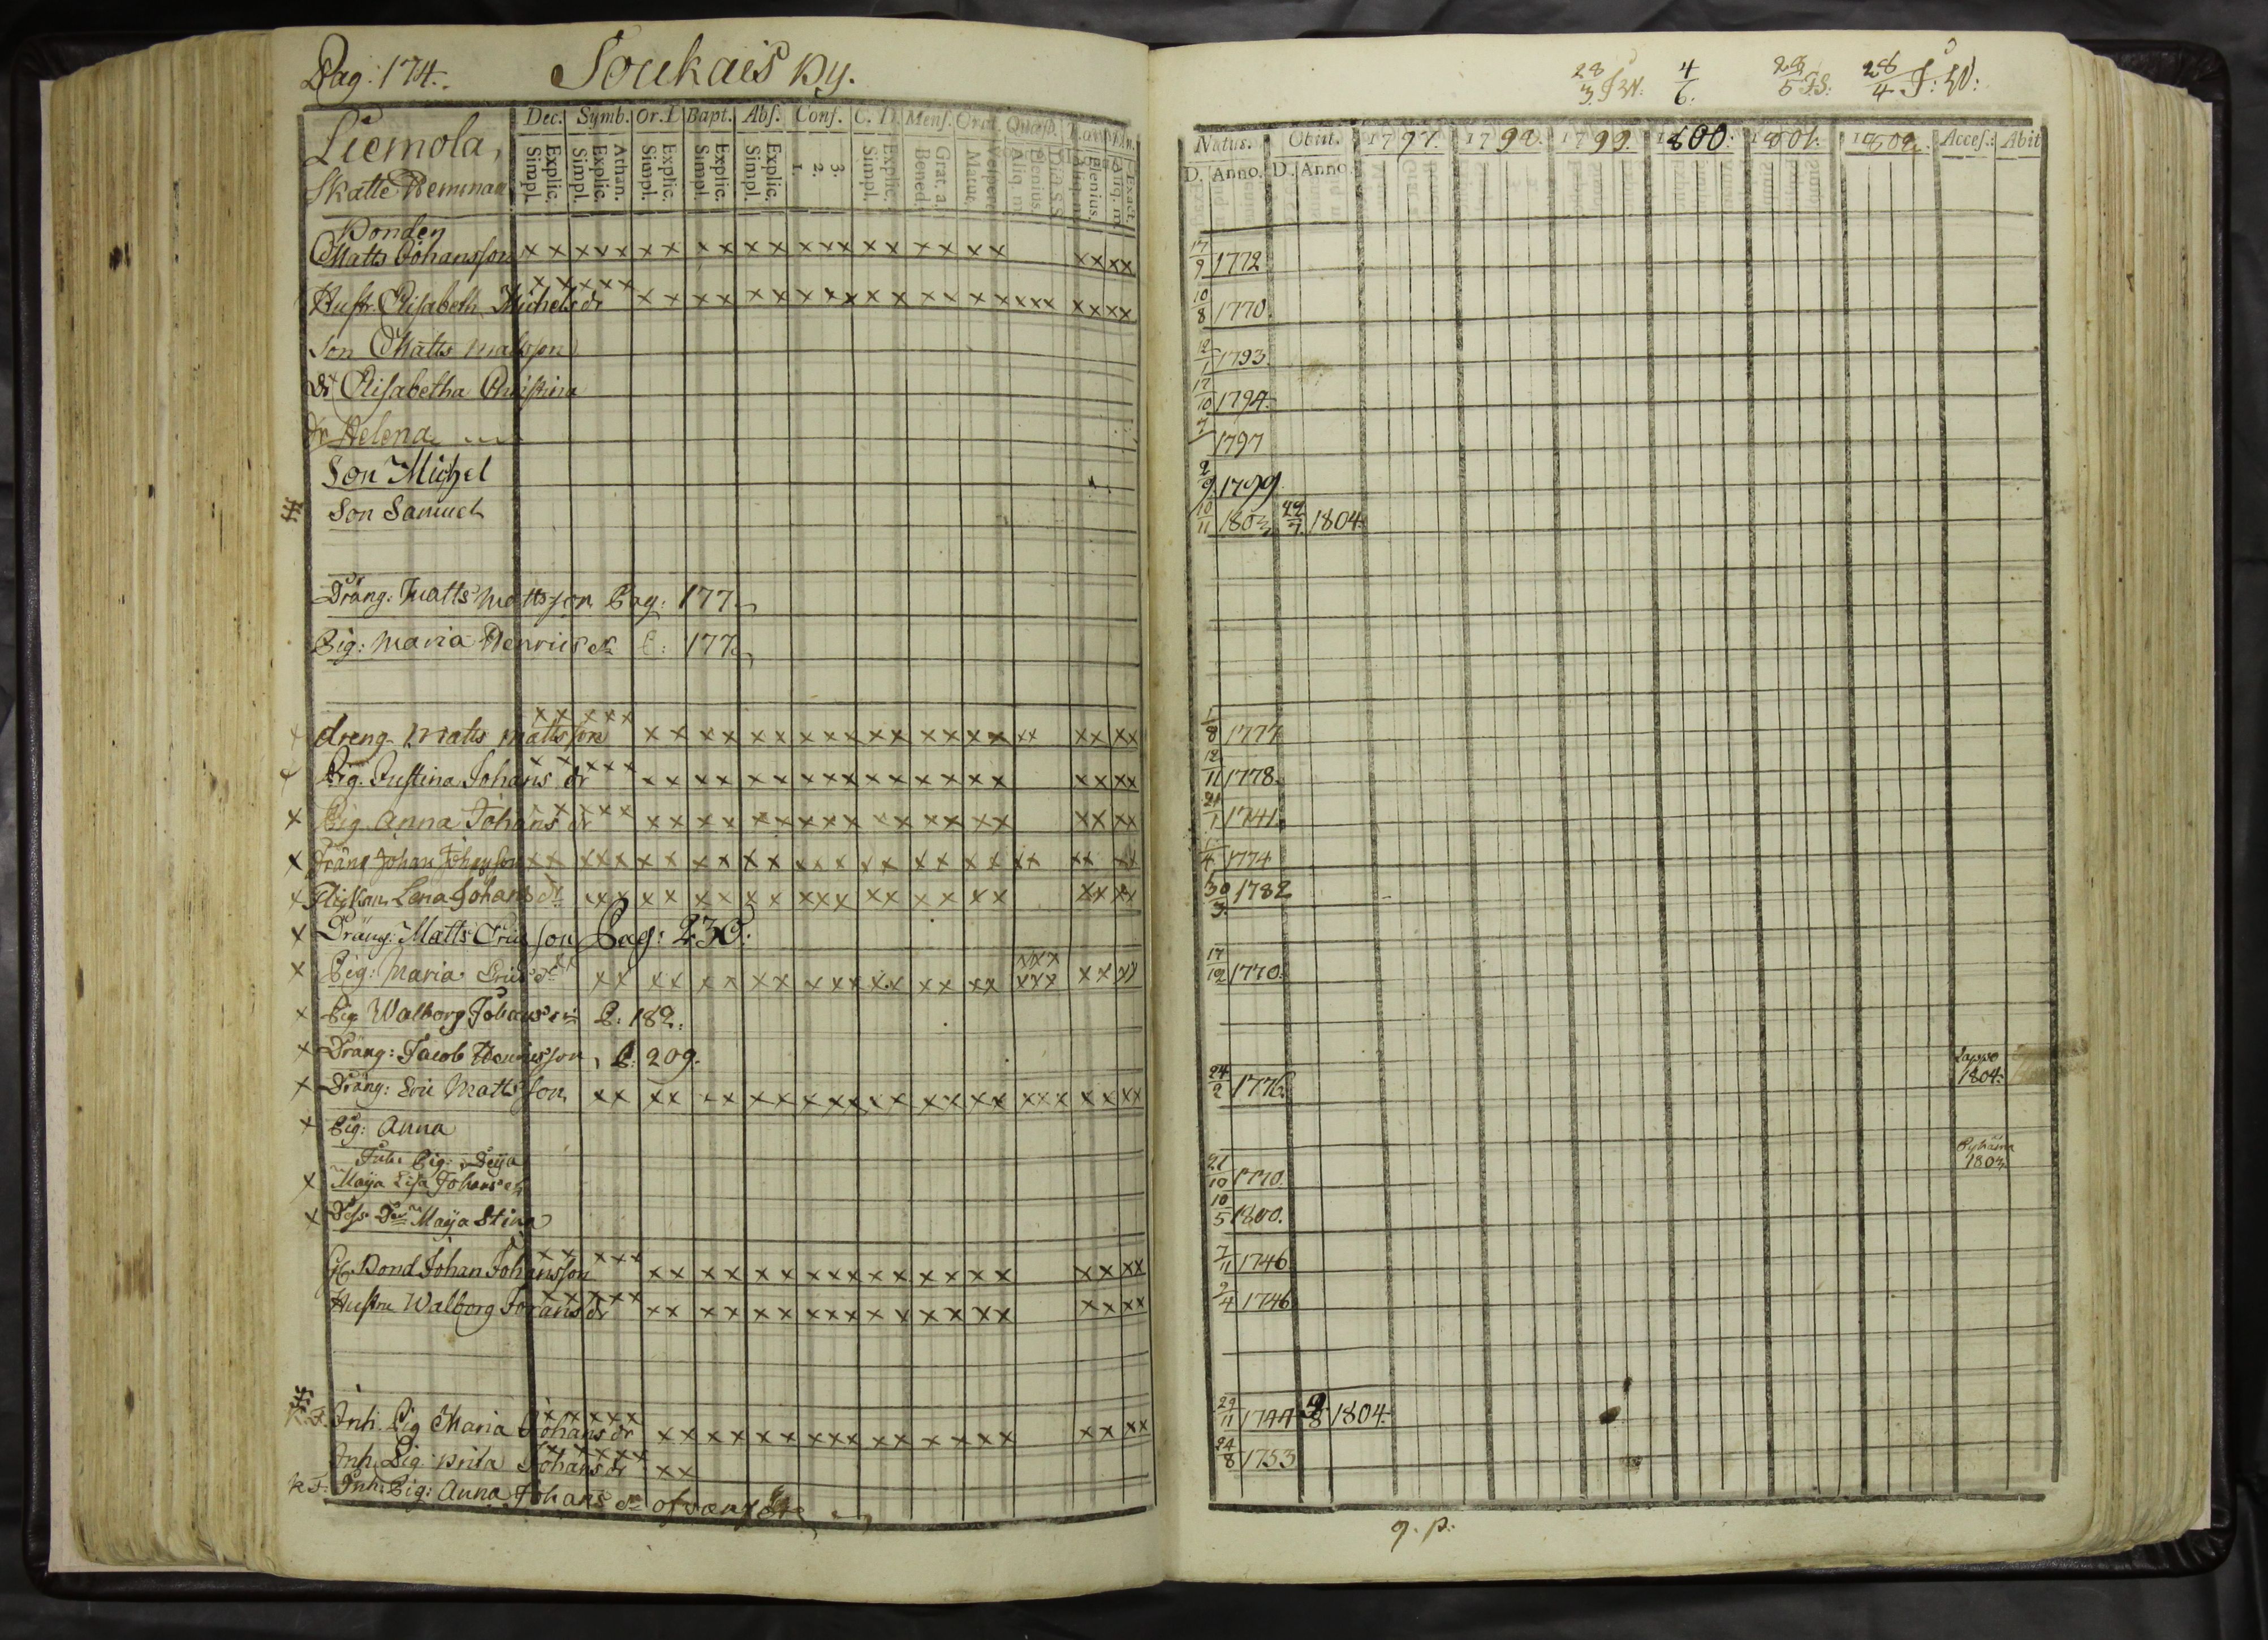 Pag: 174. Soukais By.
Liemola,
Skatte Hemman
Dec. Symb. Or. D Bapt. Abs. Conf. C. D. Mens. Orat. Quæst.
Explic. Simpl. Athan. Explic. Simpl. Explic. Simpl. Explic. Simpl. Explic. Simpl. 1. 2. 3. Explic. Simpl. Grat. a. Bened. Vespert. Matut. Aliq. m. plenius
Bonden
Matts Johansson x x x x x x x x x x x x x x x x x x x x x x x x x
x x x x x
Hustr. Elisabeth Michels dr x x x x x x x x x x x x x x x x x x x x x x
Son Matts Mattsson
dr Elisabetha Christina
dr Helena
Son Michel
Son Samuel
Dräng: Matts Mattsson Pag: 177.
Pig: Maria Henrics dr P: 177.
x x x x x
dreng Matts Mattsson x x x x x x x x x x x x x x x x x x x x x
Pig. Justina Johans dr x x x x x x x x x x x x x x x x x x x
Pig Anna Johans dr x x x x x x x x x x x x x x x x x x x
Dräng Johan Johansson x x x x x x x x x x x x x x x x x x x x x x x x x x
Flickan Lena Johans dr x x x x x x x x x x x x x x x x x x x x x x
Dräng: Matts Ericsson Pag: 230:
Pig: Maria Erics dr x x x x x x x x x x x x x x x x x x x x x x x
Pig Walborg Johans dr P: 182.
Dräng: Jacob Henricsson, P: 209.
Dräng: Eric Mattsson x x x x x x x x x x x x x x x x x x x x x x x x
Pig: Anna
Inh. Pig: Deja
Maja Lisa Johans dr
Dess Dr Maja Stina
x x x x x
Bond Johan Johansson x x x x x x x x x x x x x x x x x x x
x x x x x
Hustru Walborg Johans dr x x x x x x x x x x x x x x x x x x x
x x x x x
K. F. Inh. Pig Maria Johans dr x x x x x x x x x x x x x x x x x x x
x x x x x
Inh. Pig Brita Johans dr x x
K F: Inh: Pig: Anna Johans dr
28/3 J W: 4/6. 28/5 J.S: 28/4 J: W:
Natus. Obiit. 1797. 1798. 1799. 1800. 1801. 1802. Acces.: Abit
D. Anno. D. Anno.
17/9 1772
10/8 1770.
12/1 1793.
17/10 1794.
7/ 1797
2/9 1799.
10/11 1803 22/7 1804.
1/8 1777
12/11 1778.
21/1 1741.
/4 1774
30/3 1782
17/12 1770.
24/2 1776. Lappo
1804.
21/10 1770. Pyhäma
1803
10/5 1800.
7/11 1746
2/4 1746
29/11 1744 9/8 1804.
24/8 1753
g. p.